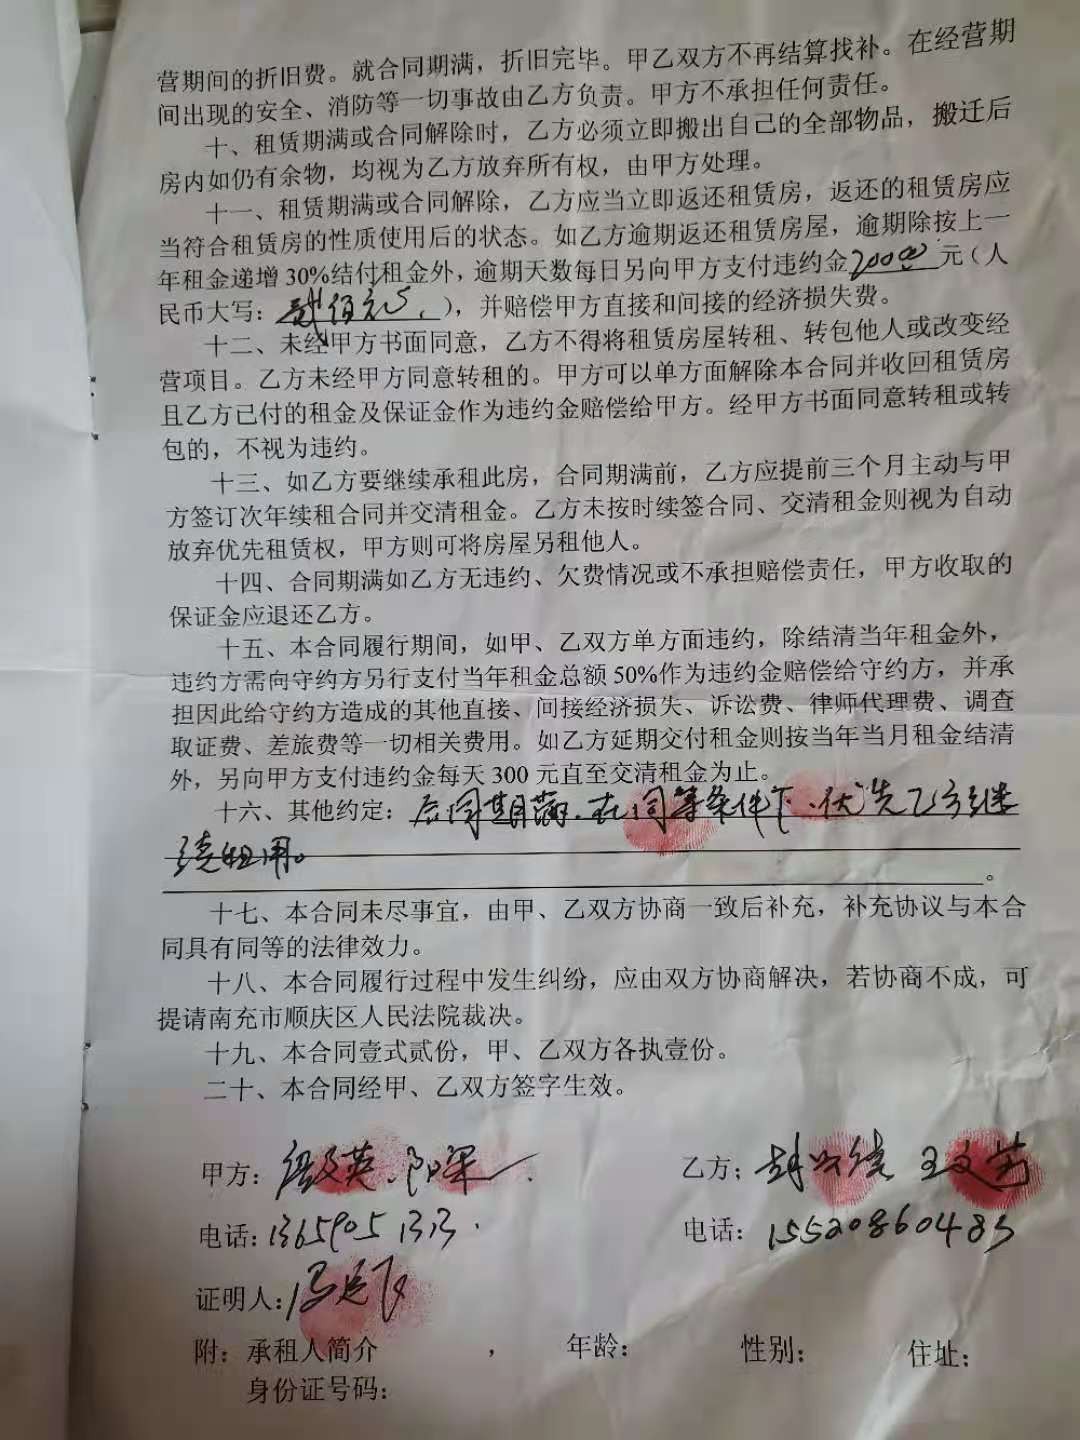 营期间的折旧费。就合同期满，折旧完毕。甲乙双方不再结算找补。在经营期
间出现的安全、消防等一切事故由乙方负责。甲方不承担任何责任。
十、租赁期满或合同解除时，乙方必须立即搬出自己的全部物品，搬迁后
房内如仍有余物，均视为乙方放弃所有权，由甲方处理。
十一、租赁期满或合同解除，乙方应当立即返还租赁房，返还的租赁房应
当符合租赁房的性质使用后的状态。如乙方逾期返还租赁房屋，逾期除按上一
年租金递增30%结付租金外，逾期天数每日另向甲方支付违约金 元（人
民币大写：贰佰元），并赔偿甲方直接和间接的经济损失费。
十二、未经甲方书面同意，乙方不得将租赁房屋转租、转包他人或改变经
营项目。乙方未经甲方同意转租的。甲方可以单方面解除本合同并收回租赁房
且乙方已付的租金及保证金作为违约金赔偿给甲方。经甲方书面同意转租或转
包的，不视为违约。
十三、如乙方要继续承租此房，合同期满前，乙方应提前三个月主动与甲
方签订次年续租合同并交清租金。乙方未按时续签合同、交清租金则视为自动
放弃优先租赁权，甲方则可将房屋另租他人。
十四、合同期满如乙方无违约、欠费情况或不承担赔偿责任，甲方收取的
保证金应退还乙方。
十五、本合同履行期间，如甲、乙双方单方面违约，除结清当年租金外，
违约方需向守约方另行支付当年租金总额50%作为违约金赔偿给守约方，并承
担因此给守约方造成的其他直接、间接经济损失、诉讼费、律师代理费、调查
取证费、差旅费等一切相关费用。如乙方延期交付租金则按当年当月租金结清
外，另向甲方支付违约金每天300元直至交清租金为止。
十六、其他约定：合同期满.在同等条件下.优先乙方继
续租用。
。
十七、本合同未尽事宜，由甲、乙双方协商一致后补充，补充协议与本合
同具有同等的法律效力。
十八、本合同履行过程中发生纠纷，应由双方协商解决，若协商不成，可
提请南充市顺庆区人民法院裁决。
十九、本合同壹式贰份，甲、乙双方各执壹份。
二十、本合同经甲、乙双方签字生效。
甲方： 乙方：
电话：13659051333. 电话：15520860483
证明人：
附：承租人简介 ， 年龄： 性别： 住址：
身份证号码：